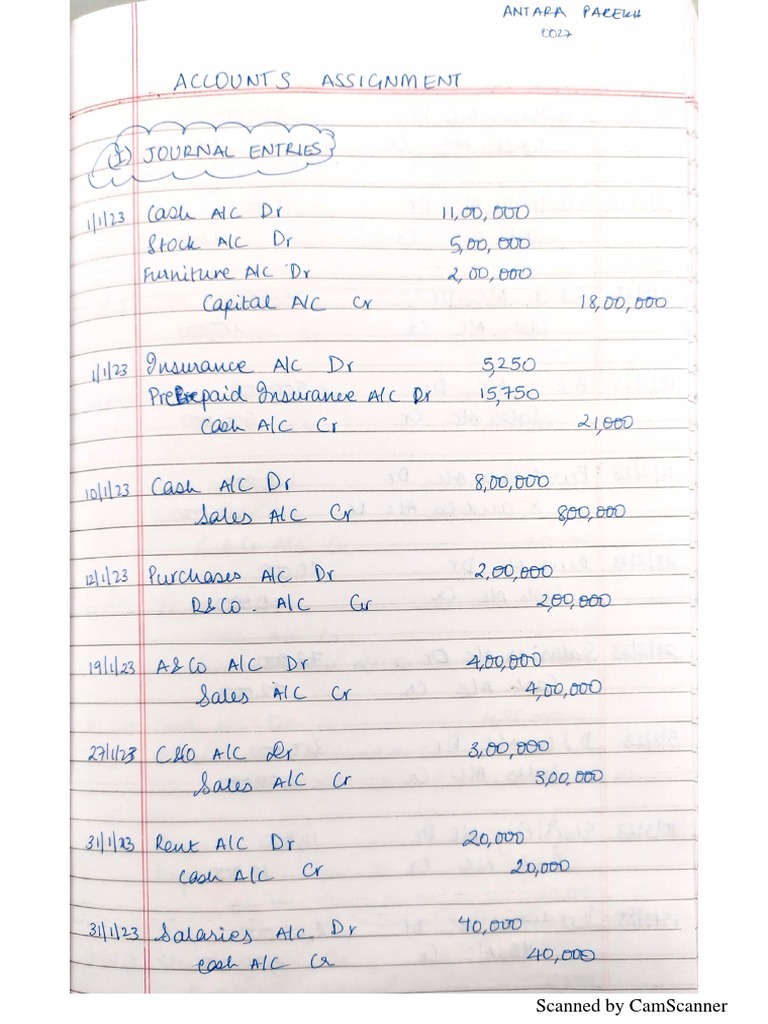 ANTARA PAREKH
0027
ACCOUNTS ASSIGNMENT
(I) JOURNAL ENTRIES
1/1/23 Cash A/C Dr 11,00,000
Stock A/C Dr 5,00,000
Furniture A/C Dr 2,00,000
Capital A/C Cr 18,00,000
1/1/23 Insurance A/C Dr 5,250
Prepaid Insurance A/C Dr 15,750
Cash A/C Cr 21,000
10/1/23 Cash A/C Dr 8,00,000
Sales A/C Cr 8,00,000
12/1/23 Purchases A/C Dr 2,00,000
R&Co. A/C Cr 2,00,000
19/1/23 A&Co A/C Dr 4,00,000
Sales A/C Cr 4,00,000
27/1/23 C&O A/C Dr 3,00,000
Sales A/C Cr 3,00,000
31/1/23 Rent A/C Dr 20,000
Cash A/C Cr 20,000
31/1/23 Salaries A/C Dr 40,000
Cash A/C Cr 40,000
Scanned by CamScanner